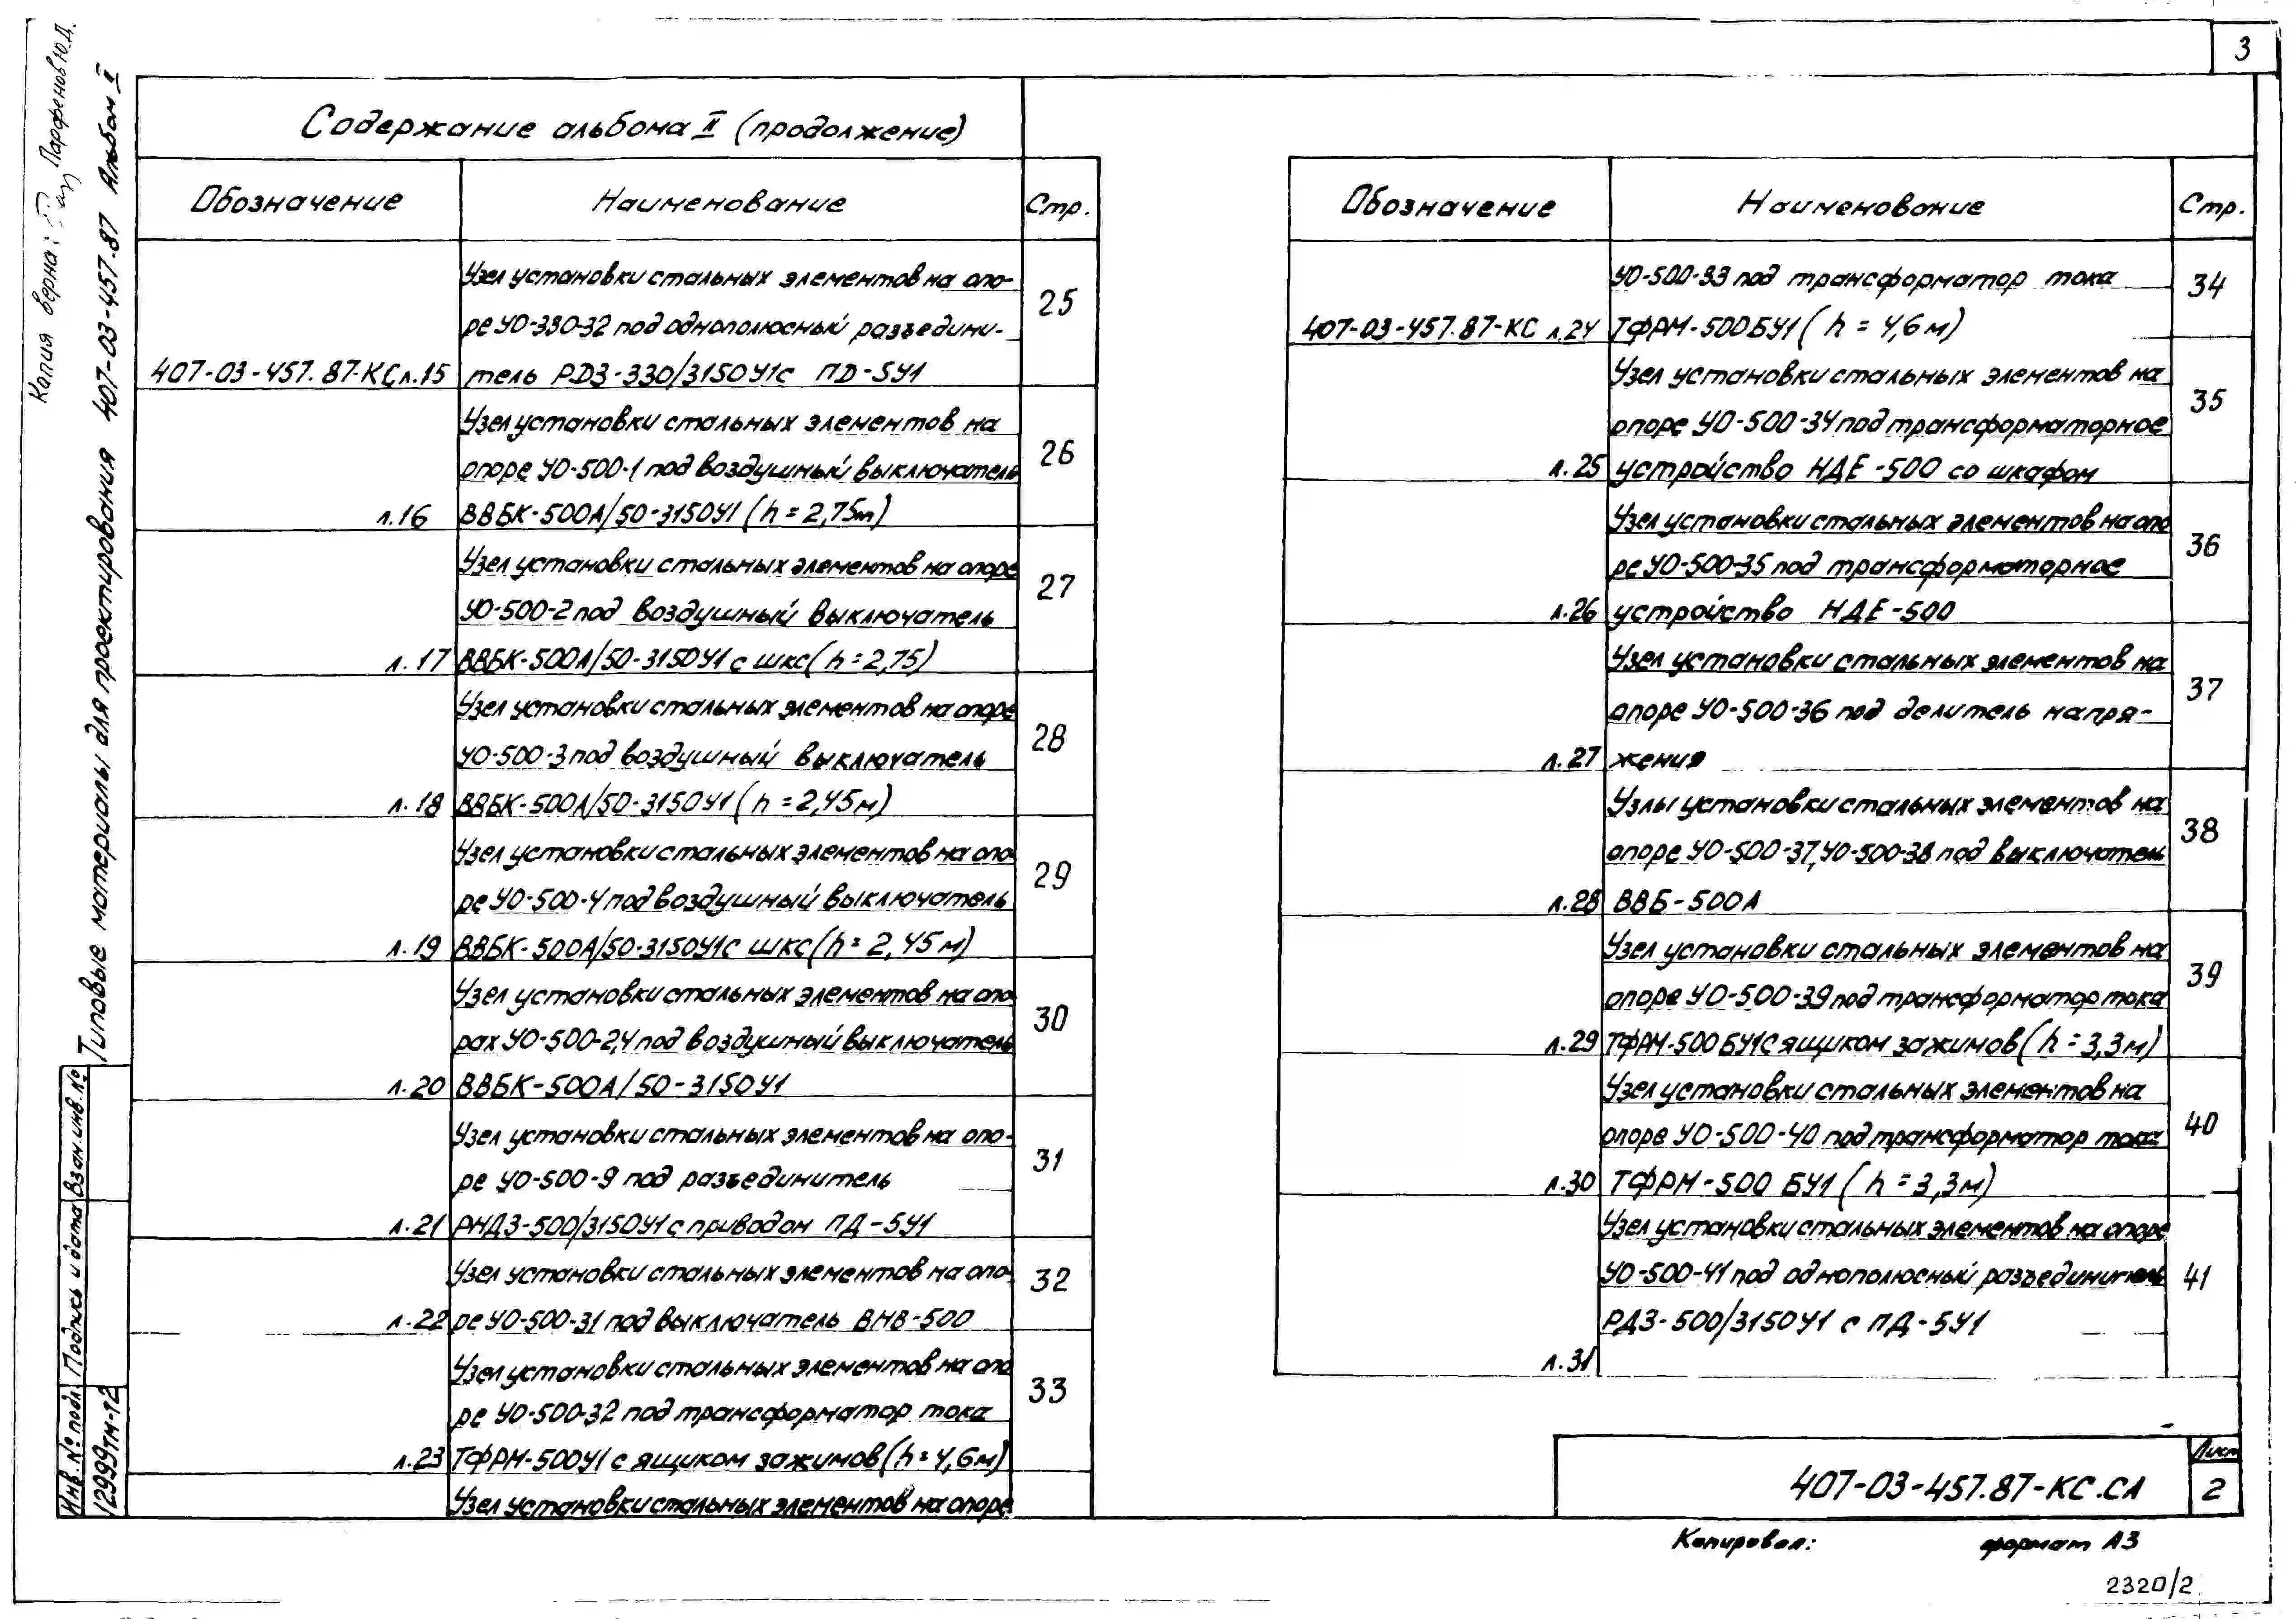 3
Содержание альбома II (продолжение)
Обозначение Наименование Стр.
Узел установки стальных элементов на опо-
ре УО-330-32 под однополюсный разъедини- 25
407-03-457.87-КС л.15 тель РДЗ-330/3150У1с ПД-5У1
Узел установки стальных элементов на
опоре УО-500-1 под воздушный выключатель 26
л.16 ВВБК-500А/50-3150У1 (h=2,75м)
Узел установки стальных элементов на опоре
УО-500-2 под воздушный выключатель 27
л.17 ВВБК-500А/50-3150У1 с шкс (h=2,75)
Узел установки стальных элементов на опоре
УО-500-3 под воздушный выключатель 28
л.18 ВВБК-500А/50-3150У1 (h=2,45м)
Узел установки стальных элементов на опо-
ре УО-500-4 под воздушный выключатель 29
л.19 ВВБК-500А/50-3150У1с шкс (h=2,45м)
Узел установки стальных элементов на опо
рах УО-500-2,4 под воздушный выключатель 30
л.20 ВВБК-500А/50-3150У1
Узел установки стальных элементов на опо-
ре УО-500-9 под разъединитель 31
л.21 РНДЗ-500/3150У1 с приводом ПД-5У1
Узел установки стальных элементов на опо- 32
л.22 ре УО-500-31 под выключатель ВНВ-500
Узел установки стальных элементов на опо
ре УО-500-32 под трансформатор тока 33
л.23 ТФРМ-500У1 с ящиком зажимов (h=4,6м)
Узел установки стальных элементов на опоре
Обозначение Наименование Стр.
УО-500-33 под трансформатор тока 34
407-03-457.87-КС л.24 ТФРМ-500БУ1 (h=4,6м)
Узел установки стальных элементов на
опоре УО-500-34 под трансформаторное 35
л.25 устройство НДЕ-500 со шкафом
Узел установки стальных элементов на опо
ре УО-500-35 под трансформаторное 36
л.26 устройство НДЕ-500
Узел установки стальных элементов на
опоре УО-500-36 под делитель напря- 37
л.27 жения
Узлы установки стальных элементов на
опоре УО-500-37, УО-500-38 под выключатель 38
л.28 ВВБ-500А
Узел установки стальных элементов на
опоре УО-500-39 под трансформатор тока 39
л.29 ТФРМ-500БУ1С ящиком зажимов (h=3,3м)
Узел установки стальных элементов на
опоре УО-500-40 под трансформатор тока 40
л.30 ТФРМ-500 БУ1 (h=3,3м)
Узел установки стальных элементов на опоре
УО-500-41 под однополюсный разъединитель 41
РДЗ-500/3150У1 с ПД-5У1
л.31
407-03-457.87-КС.СА
Лист
2
Копировал: формат А3
2320/2
Копия верна: Парфенов Ю.Д.
Типовые материалы для проектирования 407-03-457.87 Альбом II
Взам. инв. №
Подпись и дата
Инв. № подл.
12999тм-т2